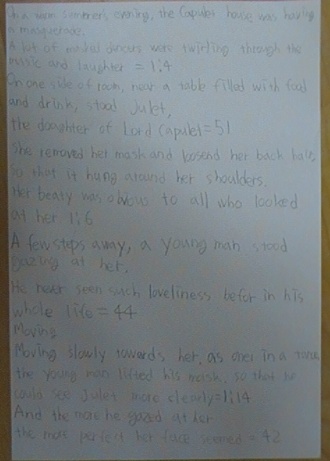 On a warm summers evening, the Capulet house was having
a masquerade.
A lot of masked dancers were twirling through the
music and laughter = 1:4
On one side of room, near a table filled with food
and drink, stood Julet,
the daughter of Lord Capulel=51
she removed her mask and loosend her back hair
so that it hung around her shoulders.
Her beaty was obvious to all who looked
at her 1:6
A few steps away, a young man stood
gazing at her.
He never seen such loveliness befor in his
whole life = 44
Moving
Moving slowly towards her, as one in a
the young man lifted his mask, so that he
could see Julet more clearly=1:14
And the more he gazed at her
the more perfect her face seemed = 42